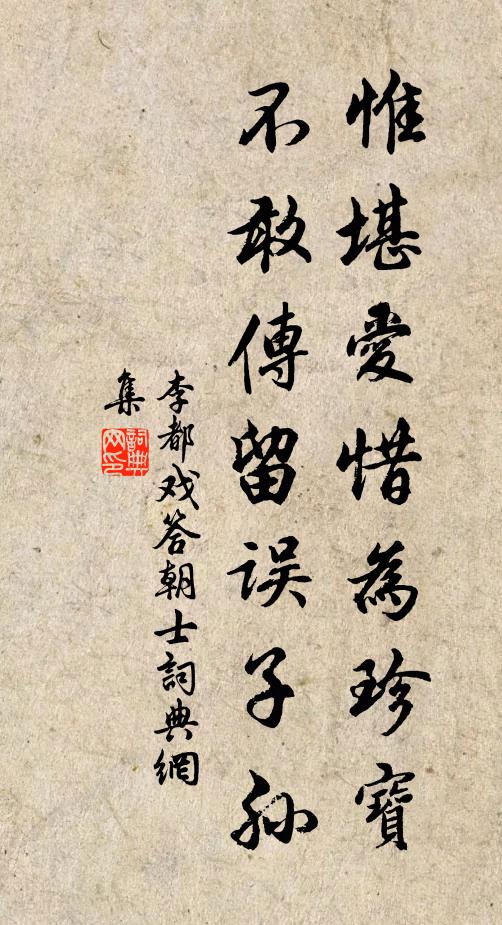 惟堪愛惜為珍寶
不敢傳留误子孫
李都戏答朝士詞典網
集
詞典
网印